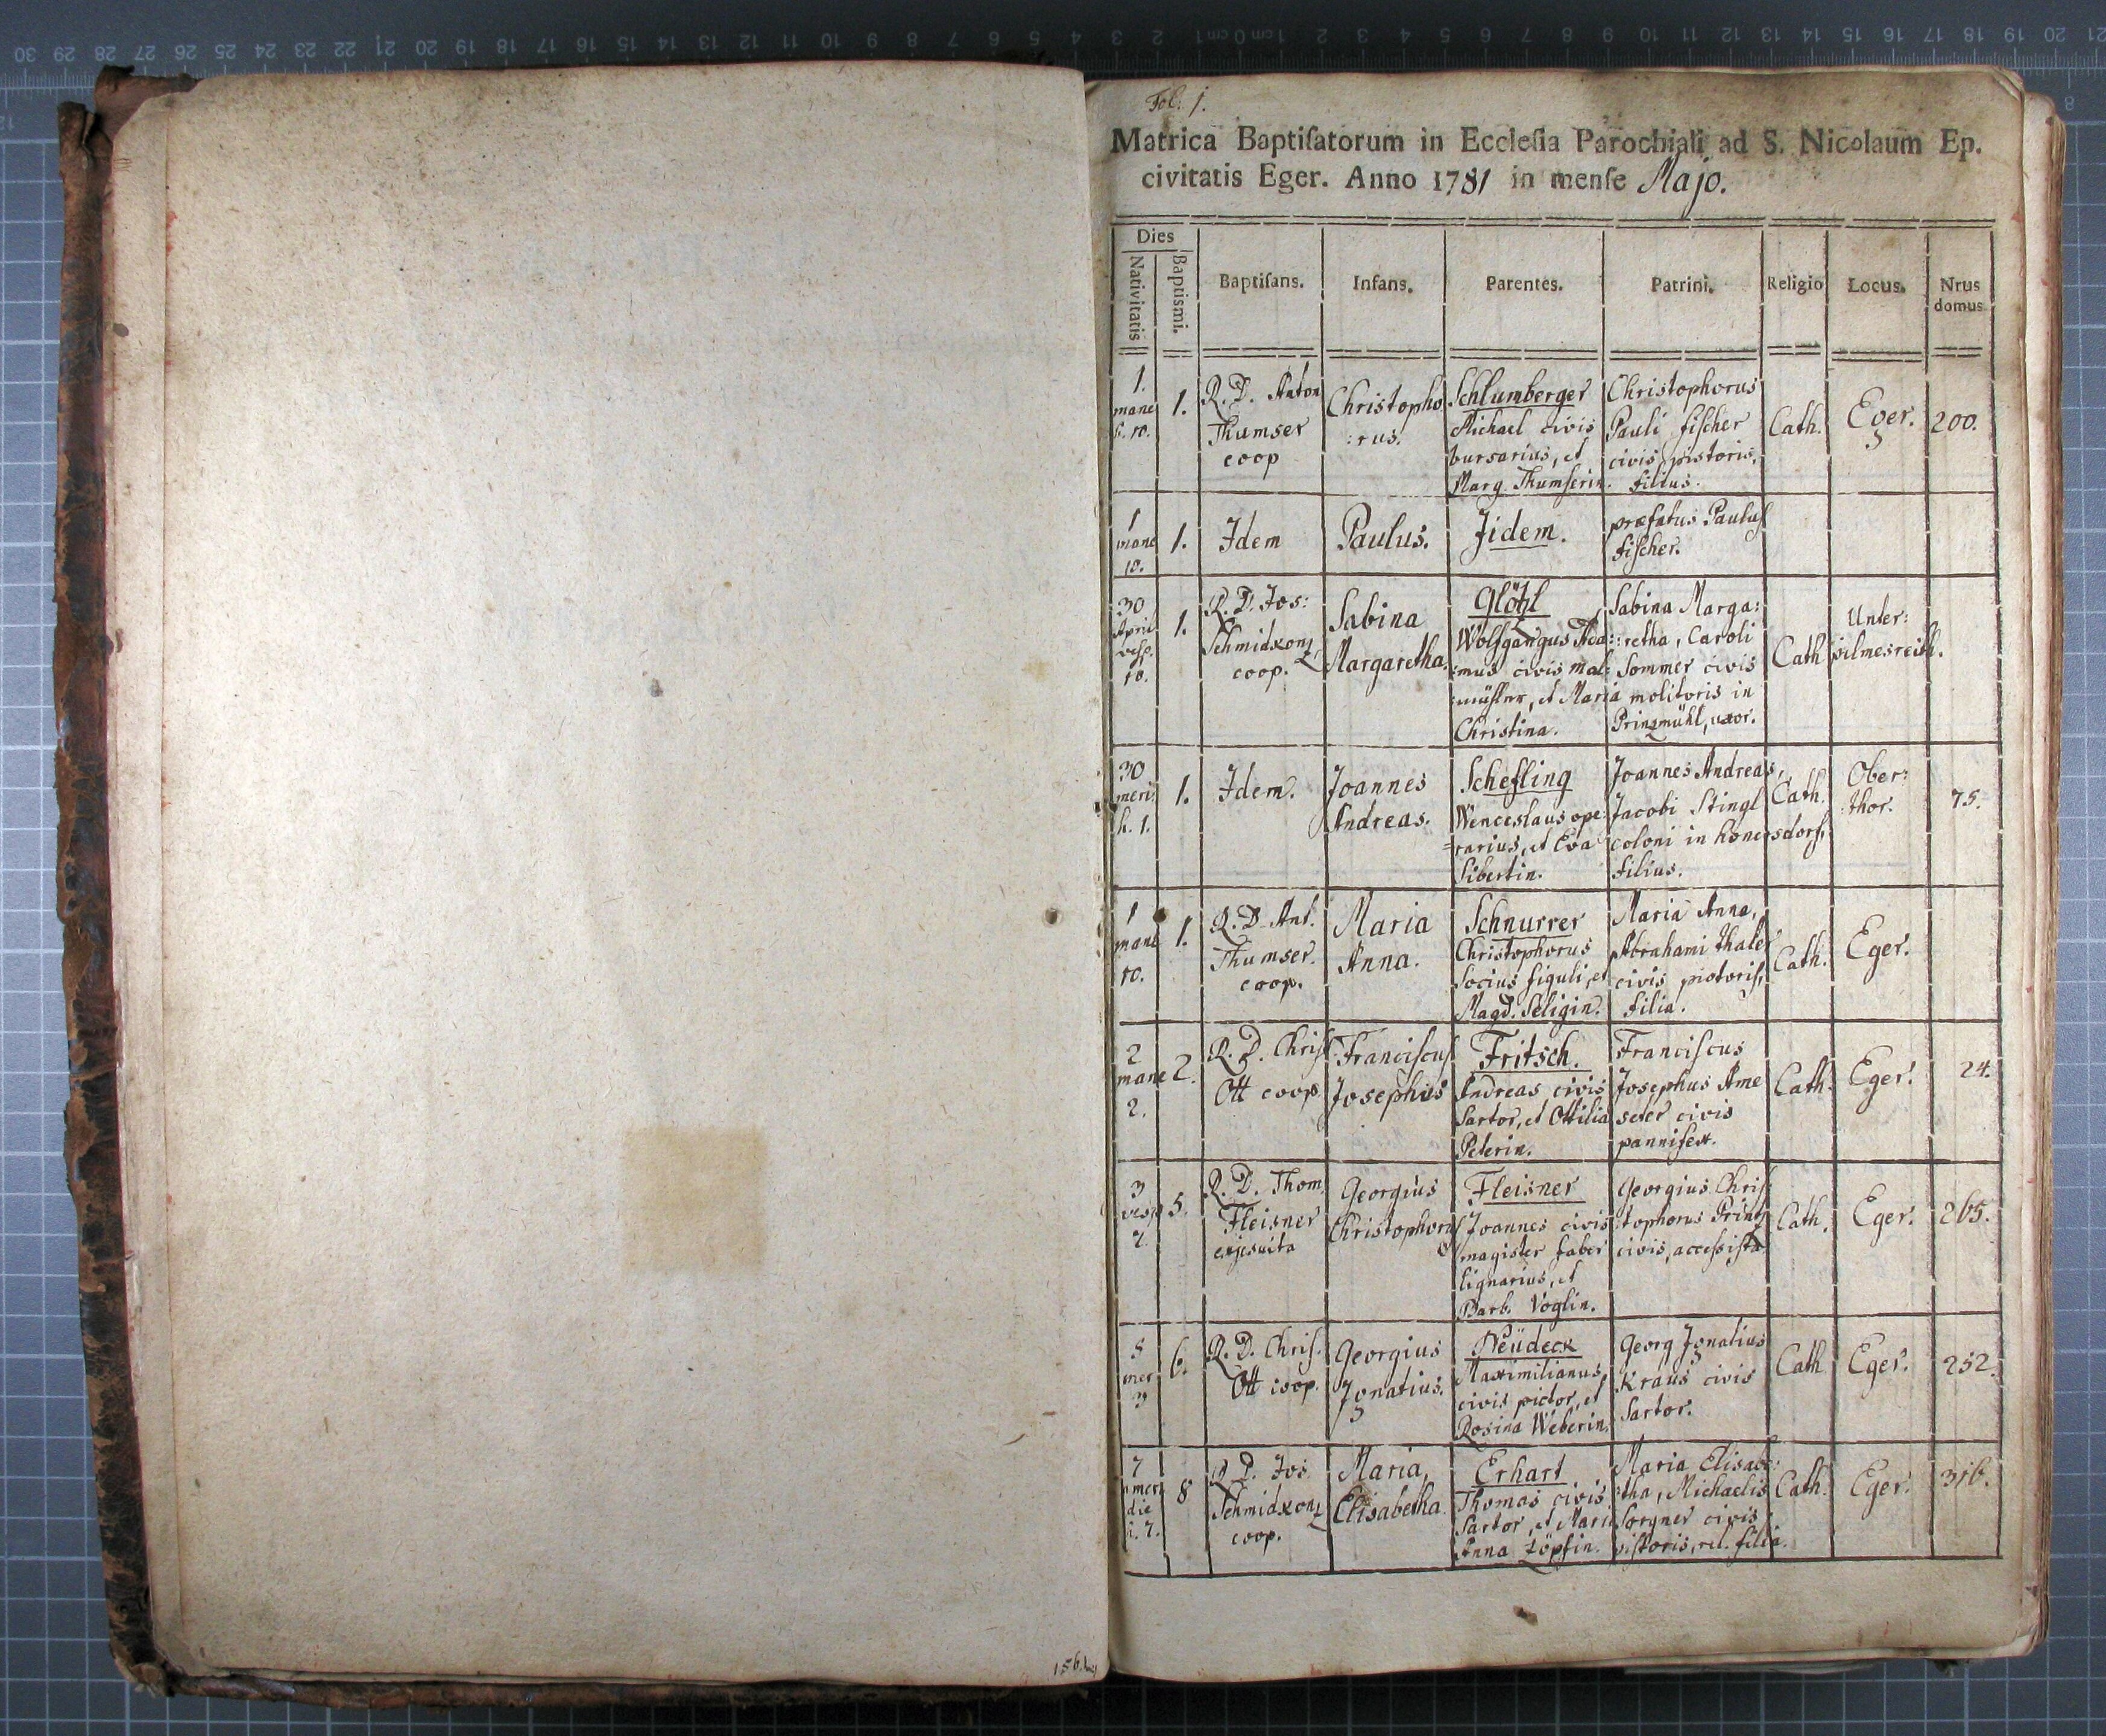 Fol. 1.
Matrica Baptiſatorum in Eccleſia Parochiali ad S. Nicolaum Ep.
civitatis Eger. Anno 1781 in menſe Majo.
Dies
Nativitatis
Baptismi.
Baptiſans.
Infans.
Parentes.
Patrini.
Religio
Locus.
Nrus
domus
1.
mane
h. 10.
1.
R. D. Anton
Thumser
coop
Christopho
:rus.
Schlumberger
Michael civis
bursarius, et
Marg. Thumserin.
Christophorus
Pauli fischer
civis pistoris,
filius.
Cath.
Eger.
200.
1
mane
10.
1.
Idem
Paulus.
Jidem.
præfatus Paulus
fischer.
30
April
vesp.
10.
1.
R. D. Jos:
Schmidkonz
coop.
Sabina
Margaretha.
Glötzl
Wolfgangus Ada:
:mus civis mal:
:müllner, et Maria
Christina.
Sabina Marga:
:retha, Caroli
Sommer civis
molitoris in
Prinzmühl, uxor.
Cath
Unter:
pilmesreith.
30
meri:
h. 1.
1.
Idem.
Joannes
Andreas.
Schefling
Wenceslaus ope:
=rarius, et Eva
Sibertin.
Joannes Andreas,
Jacobi Stingl
coloni in honersdorf,
filius.
Cath.
Ober:
:thor.
75.
1
mane
10.
1.
R. D. Ant.
Thumser.
coop.
Maria
Anna.
Schnurrer
Christophorus
Socius figuli, et
Magd. Seligin.
Maria Anna,
Abrahami thaler
civis pistoris,
filia.
Cath.
Eger.
2
mane
2.
2.
R. D. Chris
Ott coop.
Franciscus
Josephus
Fritsch.
Andreas civis
Sartor, et Ottilia
Peterin.
Franciscus
Josephus Ame
seder civis
pannifex.
Cath.
Eger.
24.
3
vesp
7.
5.
R. D. Thom.
Fleisner
exjesuita
Georgius
Christophorus
Fleisner
Joannes civis
magister faber
lignarius, et
Barb. Voglin.
Georgius Chris:
:tophorus Prinz
civis, accessista.
Cath.
Eger.
265.
5
mer
3
6.
R. D. Chris.
Ott coop.
Georgius
Ignatius.
Neüdeck
Maximilianus,
civis pictor, et
Rosina Weberin.
Georg Ignatius
Kraus civis
Sartor.
Cath
Eger.
252.
7
meri
die
h. 7.
8
R. D. Jos.
Schmidkonz
coop.
Maria,
Elisabetha.
Erhart
Thomas civis
Sartor, et Maria
Anna Zöpfin.
Maria Elisabe:
:tha, Michaelis
Sorgner civis
pistoris, rel. filia.
Cath.
Eger.
316.